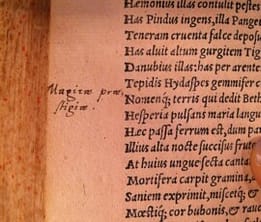 Hæmonius illas contulit pestes
Has Pindus ingens, illa Pangæ
Teneram cruenta falce deposu
Has aluit altum gurgitem Tig
Danubius illas: has per arente
Tepidis Hydaspes gemmifer c
Nomenq; terris qui dedit Beth
Hesperia pulsans maria langu
Hæc passa ferrum est, dum par
Illius alta nocte succisus frute
At huius ungue secta canta
Mortifera carpit gramina,
Saniem exprimit, miscetq; &
Mœstiq; cor bubonis, & rauc
Magicæ præ,
stigiæ.